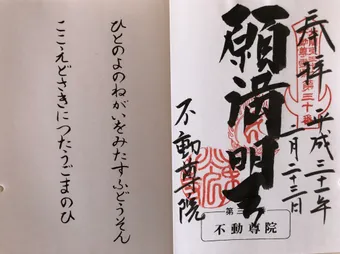 奉拝
平成三十一年
二月二十三日
願満明王
不動尊院
第三
不動尊院
ひとのよのねがいをみたすふどうそん
ここえどさきにつたうごまのひ